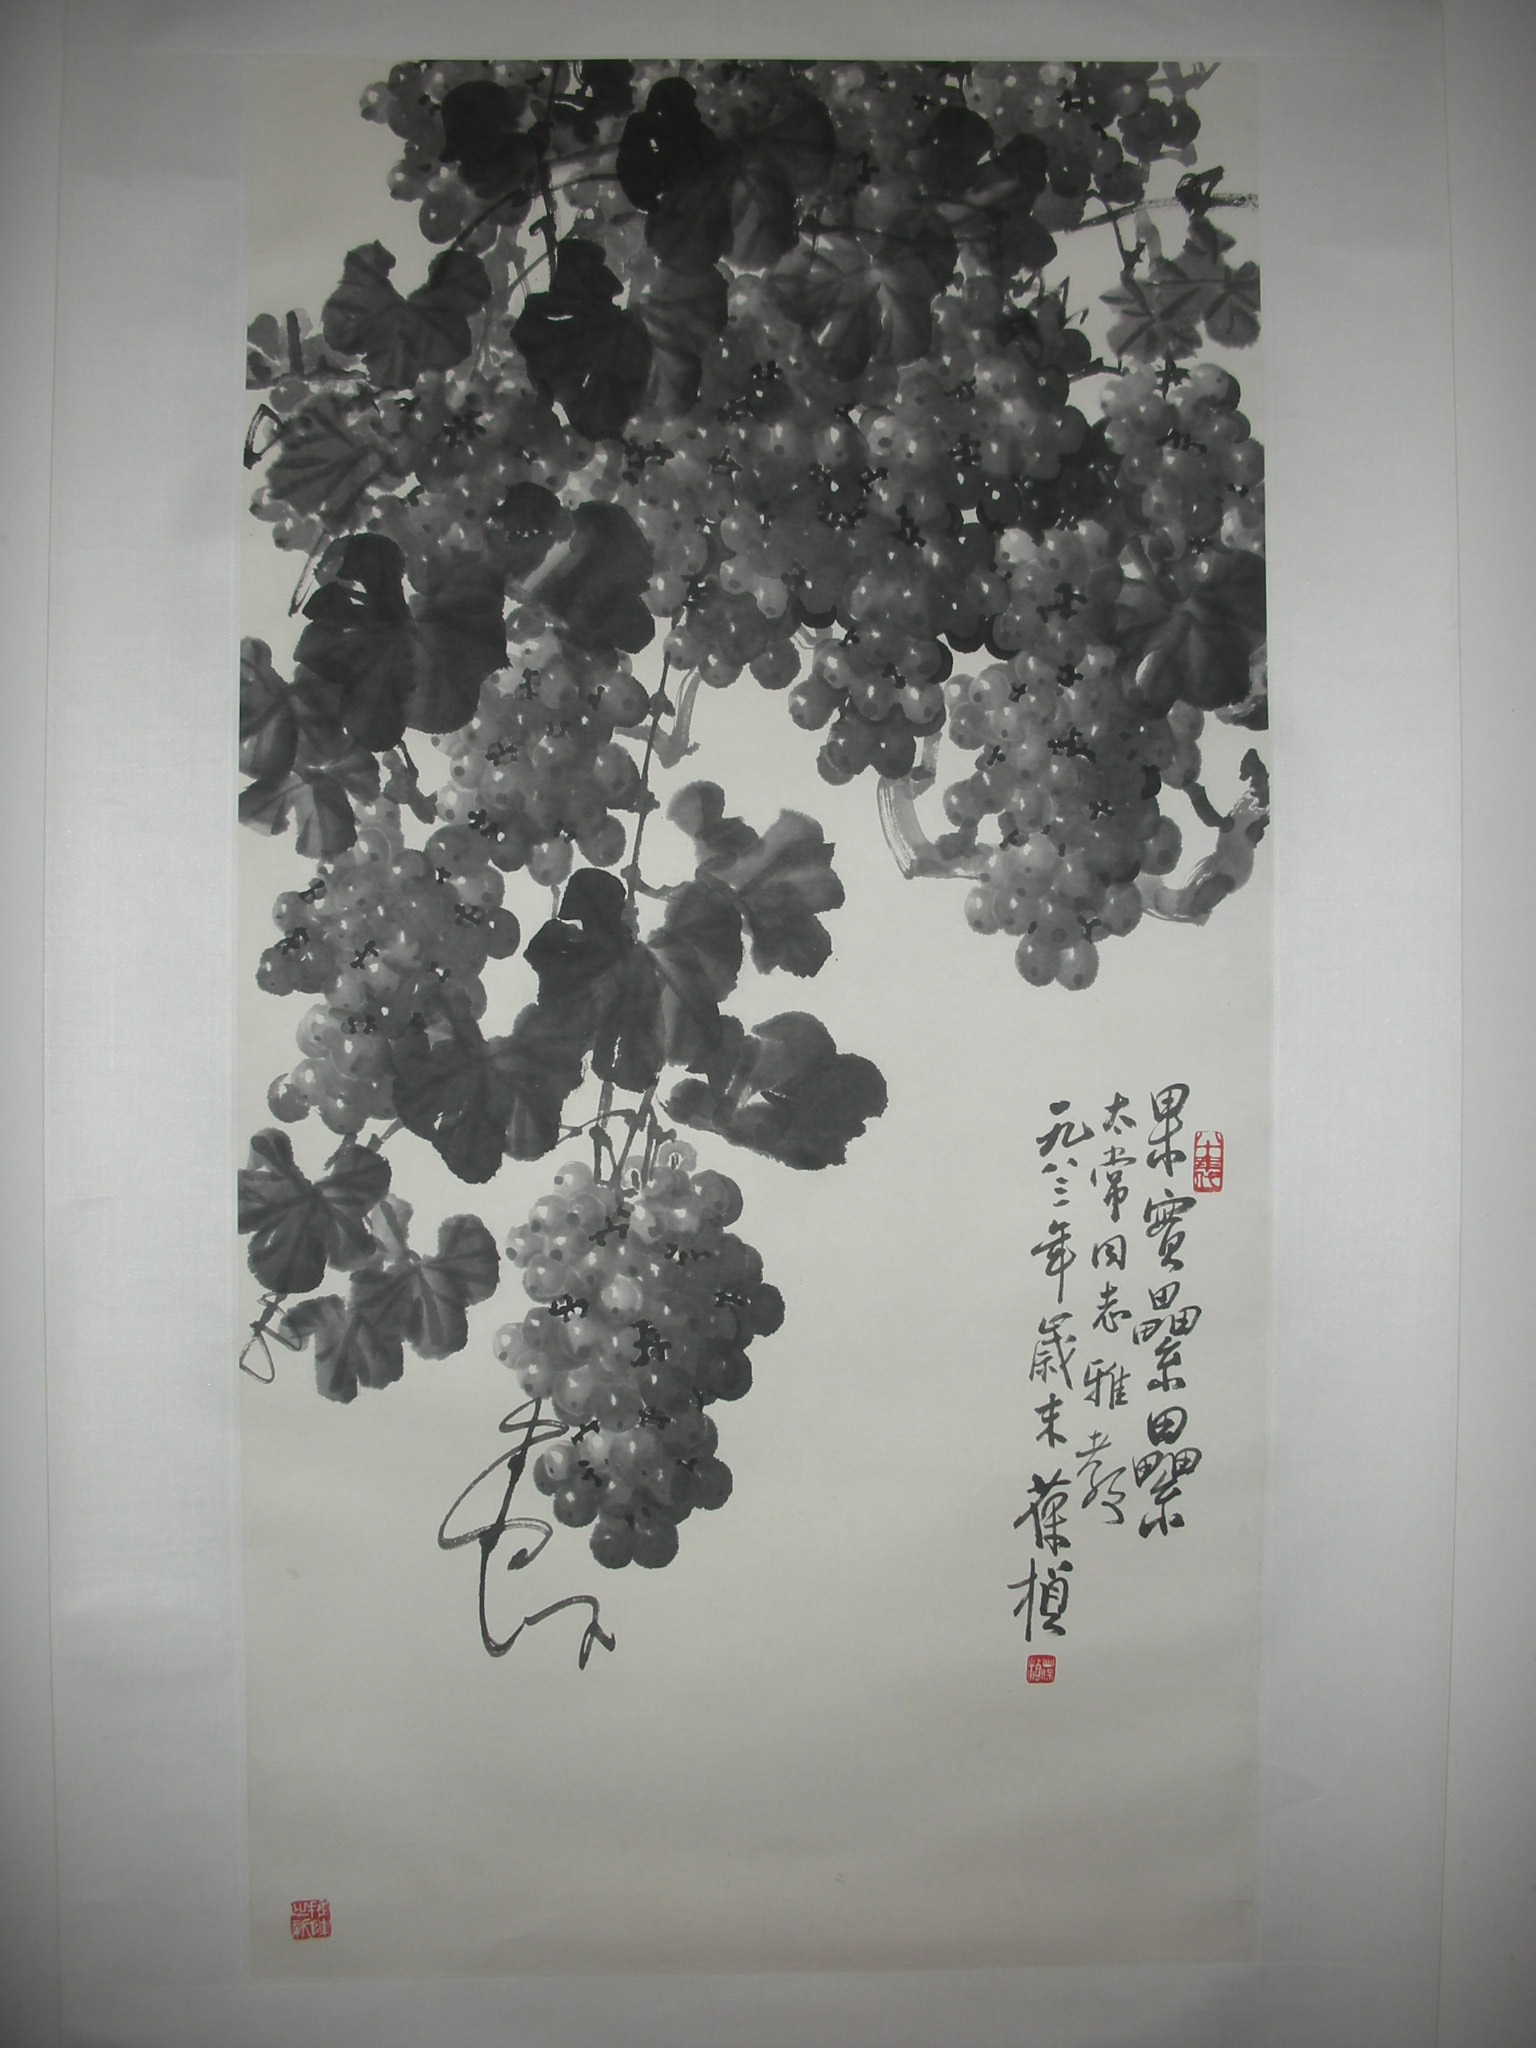 果實纍纍
太常同志雅教
一九八三年歲末 葆楨
葆楨